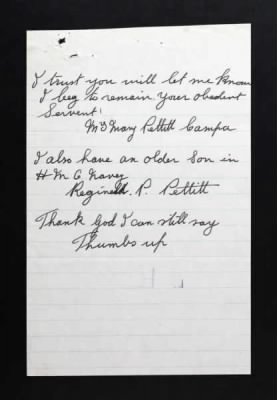 I trust you will let me know
I beg to remain your obedient
Servent!
Mrs Mary Pettitt Campa
I also have an older Son in
H M C Navey
Reginald P. Pettitt
Thank God I can still say
Thumbs up